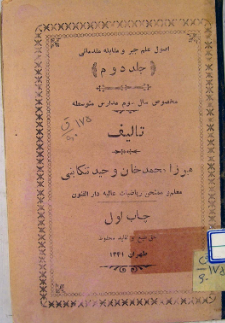 اصول علم جبر و مقابله مقدماتی
جلد دوم
مخصوص سال سوم مدارس متوسطه
تألیف
میرزا احمد خان وحید تنکابنی
معلم ریاضیات عالیه دار الفنون
چاپ اول
حق طبع محفوظ
طهران ۱۳۴۱